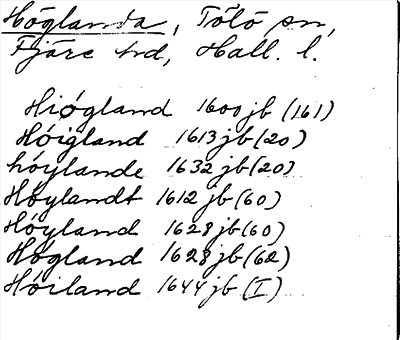 Höglanda, Tölö sn,
Fjäre hd, Hall. l.
Hiøgland 1600 jb (161)
Höigland 1613 jb (20)
höylande 1632 jb (20)
Höylandt 1612 jb (60)
Höyland 1628 jb (60)
Høgland 1628 jb (62)
Höiland 1644 jb (I)